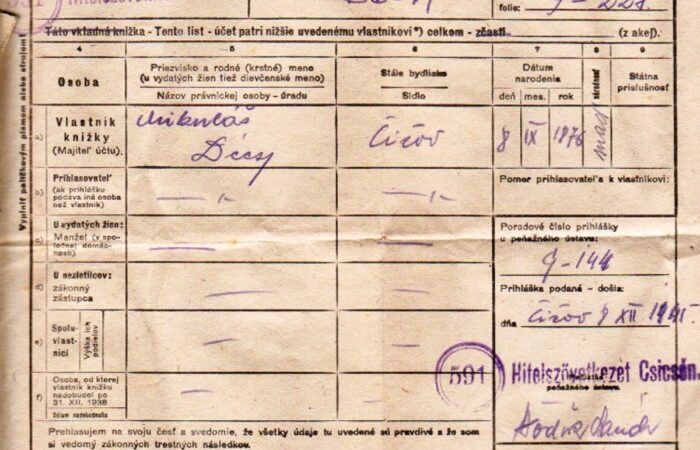 folio:
Táto vkladná knižka - Tento list - účet patrí nižšie uvedenému vlastníkovi*) celkom - zčasti (z akej).
4 5 6 7 8 9
Osoba
Priezvisko a rodné (krstné) meno
(u vydatých žien tiež dievčenské meno)
Názov právnickej osoby - úradu
Stále bydlisko
Sídlo
Dátum
narodenia
deň mes. rok
národnosť
Štátna
príslušnosť
Vyplniť paličkovým písmom alebo strojom!
a)
Vlastník
knižky
(Majiteľ účtu).
Mikuláš
Décsy
Čičov
8 IX 1876 maď
b)
Prihlasovateľ
(ak prihlášku
podáva iná osoba
než vlastník)
Pomer prihlasovateľa k vlastníkovi:
c)
U vydatých žien:
Manžel (v spo-
ločnej domác-
nosti)
Poradové číslo prihlášky
u peňažného ústavu:
9-144
d)
U nezletilcov:
zákonný
zástupca
Prihláška podaná - došla:
dňa Čičov 8 XII 1945.
e)
Spolu-
vlast-
níci
Výška ich
podielov
591
Hitelszövetkezet Csicsón.
peňažného ústavu.
f)
Osoba, od ktorej
vlastník knižku
nadobudol po
31. XII. 1938
Dátum nadobudnutia
Prehlasujem na svoju česť a svedomie, že všetky údaje tu uvedené sú pravdivé a že som
si vedomý zákonných trestných následkov.